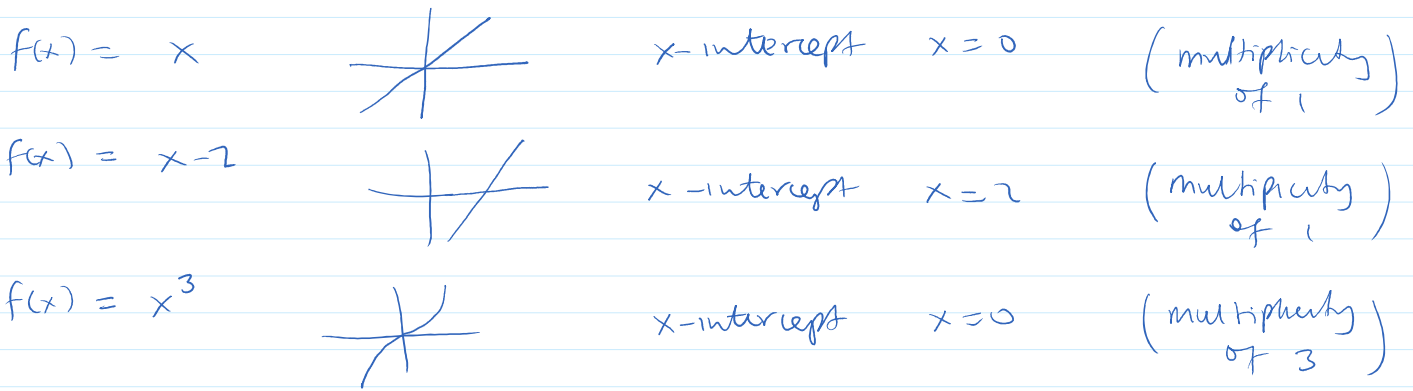 f(x) = x x-intercept x = 0 (multiplicity of 1)
f(x) = x-2 x-intercept x = 2 (multiplicity of 1)
f(x) = x³ x-intercept x = 0 (multiplicity of 3)